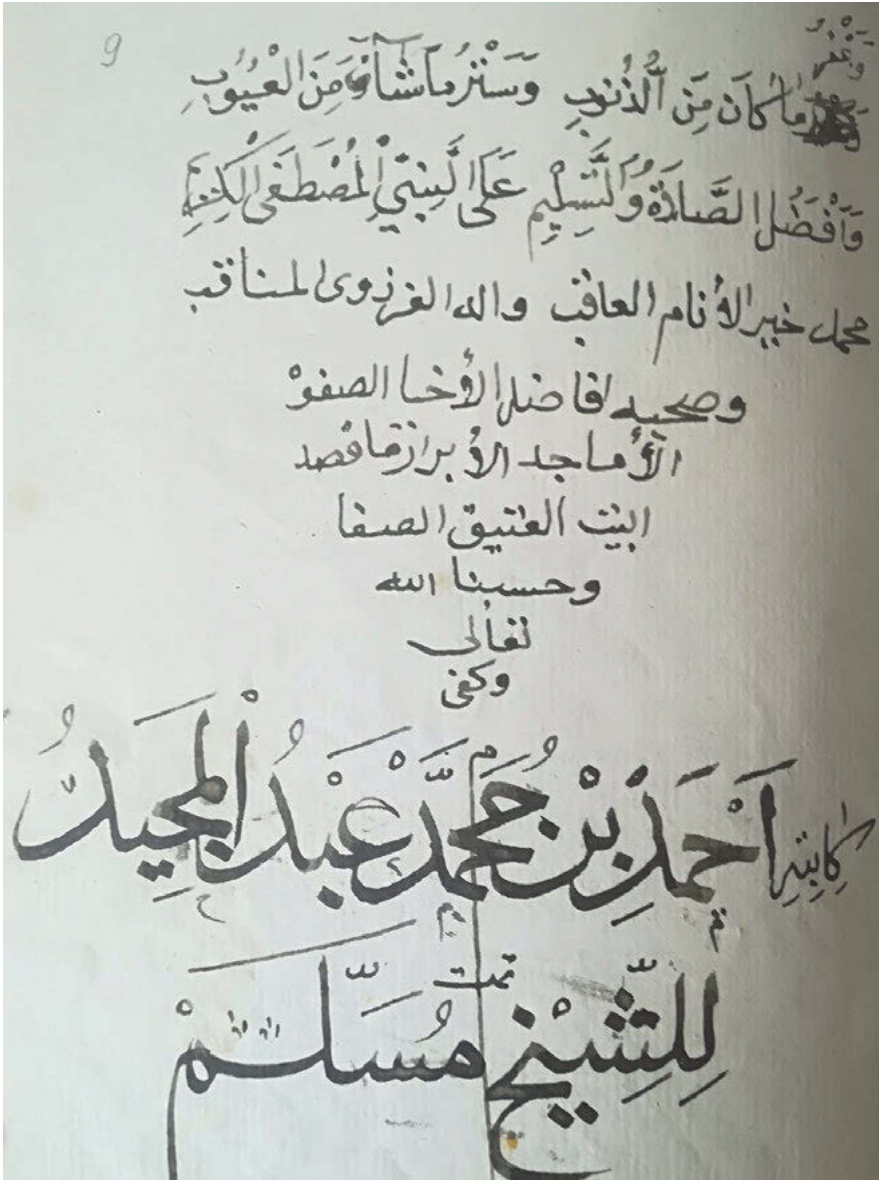 9
وَغَفْرُ
مَا كَانَ مِنَ الذُّنُوبِ وَسَتْرُ مَا شَانَ مِنَ الْعُيُوبِ
وَأَفْضَلُ الصَّلَاةِ وَالتَّسْلِيمِ عَلَى النَّبِيِّ الْمُصْطَفَى الْكَرِيمِ
محمد خير الأنام العاقب واله الغر ذوى المناقب
وصحبه افاضل الأخيا الصفو
الأماجد الأبرار ما قصد
البيت العتيق الصفا
وحسبنا الله
تعالى
وكفى
كَاتِبُهُ اَحْمَدِ بْنُ مُحَمَّدْ عَبْدُ الْمَجِيدُ
تمت
لِلشِّيْخ مُسَلَّمْ